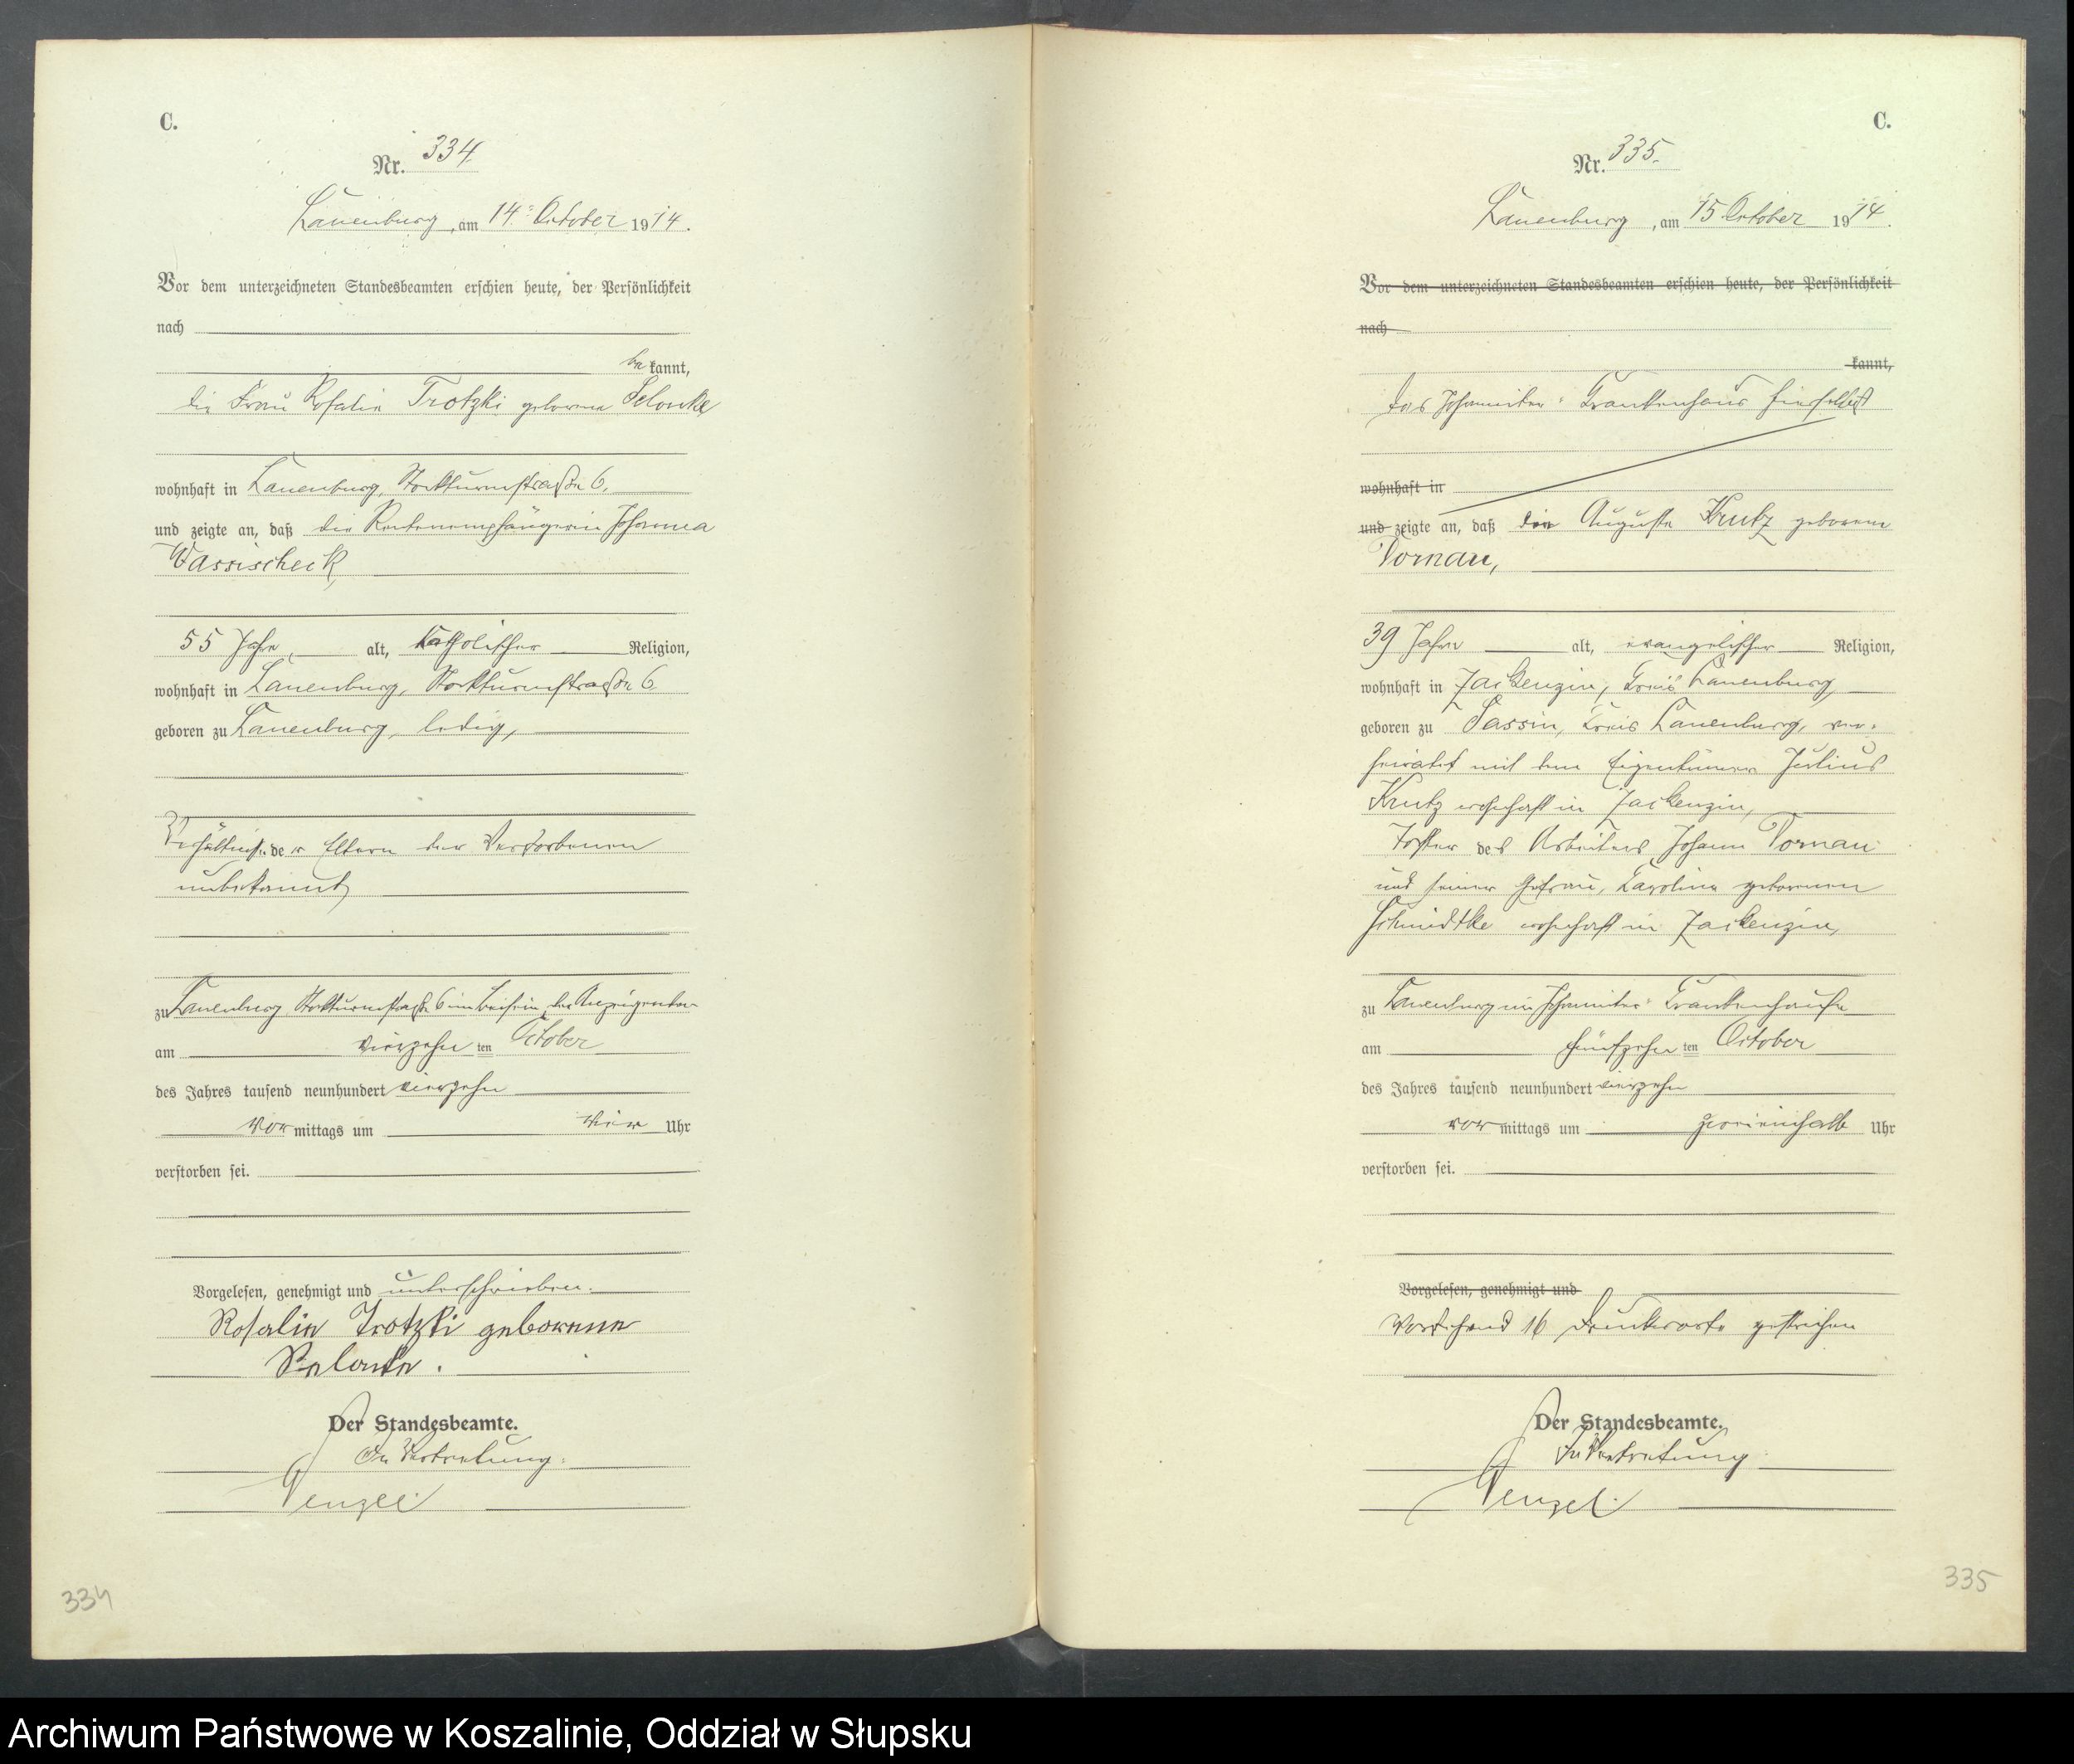 C.
Nr. 334.
Lauenburg, am 14. October 1914.
Vor dem unterzeichneten Standesbeamten erschien heute, der Persönlichkeit
nach
be kannt,
die Frau Rosalie Trotzki geborene Selonke
wohnhaft in Lauenburg, Stockturmstraße 6,
und zeigte an, daß die Rentenempfängerin Johanna
Wassischeck,
55 Jahre, alt, katholischer Religion,
wohnhaft in Lauenburg, Stockturmstraße 6
geboren zu Lauenburg, ledig,
der Eltern der Verstorbenen
unbekannt,
zu Lauenburg Stockturmstraße 6 im Beisein der Anzeigenden
am vierzehn ten October
des Jahres tausend neunhundert vierzehn
vor mittags um vier Uhr
verstorben sei.
Vorgelesen, genehmigt und unterschrieben.
Rosalie Trotzki geborene
Selonke.
Der Standesbeamte.
In Vertretung:
Wenzel
334
C.
Nr. 335.
Lauenburg, am 15 October 1914.
Vor dem unterzeichneten Standesbeamten erschien heute, der Persönlichkeit
nach
kannt,
Das Johanniter-Krankenhaus hierselbst
wohnhaft in
und zeigte an, daß die Auguste Krutz geborene
Pornau,
39 Jahre alt, evangelischer Religion,
wohnhaft in Zackenzin, Kreis Lauenburg,
geboren zu Sassin, Kreis Lauenburg, ver-
heiratet mit dem Eigentümer Julius
Krutz wohnhaft in Zackenzin,
Tochter des Arbeiters Johann Pornau
und seiner Ehefrau, Karoline geborenen
Schmidtke wohnhaft in Zackenzin,
zu Lauenburg im Johanniter-Krankenhause
am fünfzehn ten October
des Jahres tausend neunhundert vierzehn
vor mittags um zweieinhalb Uhr
verstorben sei.
Vorgelesen, genehmigt und
Vorstehend 16 Druckworte gestrichen
Der Standesbeamte.
In Vertretung
Wenzel.
335
Archiwum Państwowe w Koszalinie, Oddział w Słupsku